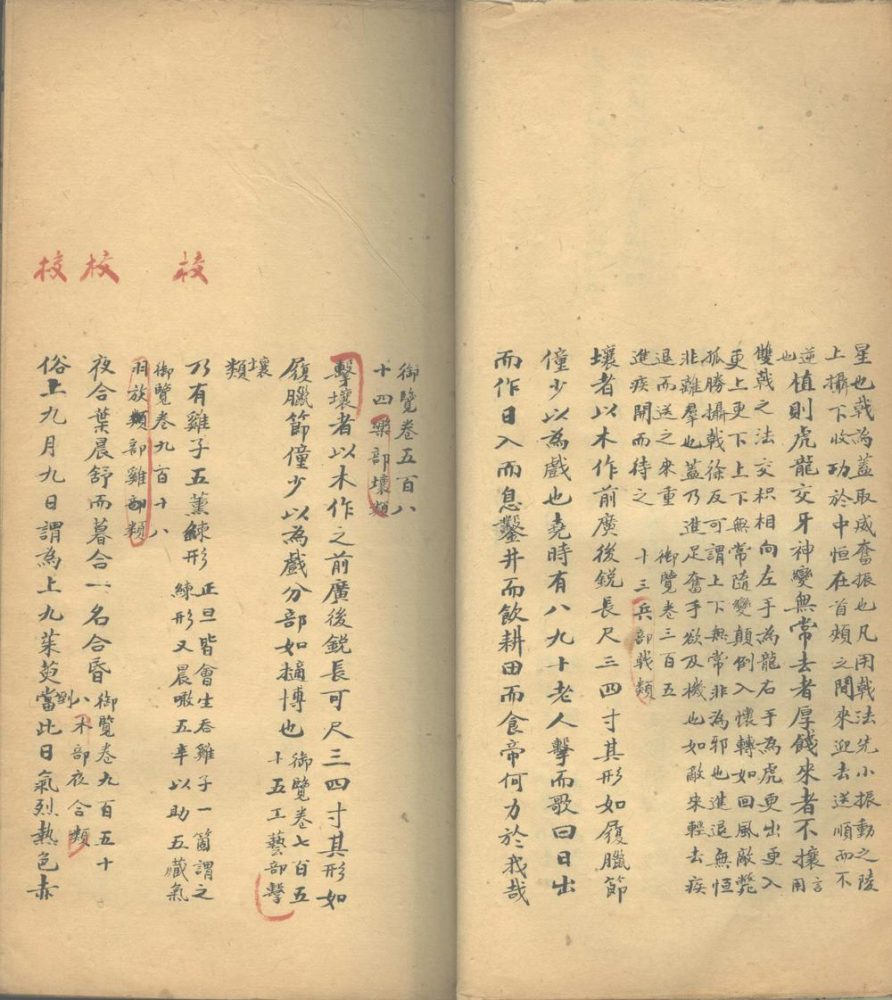 星也戟為蓋取威奮振也凡用戟法先小振動之陵
上攝下收功於中恒在首頰之間來迎去送順而不
逆植則虎龍交牙神變無常去者厚餞來者不攘言
也用
雙戟之法交枳相向左手為龍右手為虎更出更入
更上更下上下無常隨變顛倒入懷轉如回風敵斃
孤勝攝戟徐反可謂上下無常非為邪也進退無恒
非離羣也蓋乃進足奮手欲及機也如敵來輕去疾
退而送之來重御覽卷三百五
進疾開而待之十三兵部戟類
壤者以木作前廣後銳長尺三四寸其形如履臘節
僮少以為戲也堯時有八九十老人擊而歌曰日出
而作日入而息鑿井而飲耕田而食帝何力於我哉
御覽卷五百八
十四樂部壤類
擊壤者以木作之前廣後銳長可尺三四寸其形如
履臘節僮少以為戲分部如擿博也御覽卷七百五
十五工藝部擊
壤
類
校
乃有雞子五薰練形正旦皆會生吞雞子一箇謂之
練形又晨噉五辛以助五藏氣
御覽卷九百十八
羽放類部雞部類
校
夜合葉晨舒而暮合一名合昏御覽卷九百五十
八木部夜合類
校
俗上九月九日謂為上九茱萸到當此日氣烈熱色赤